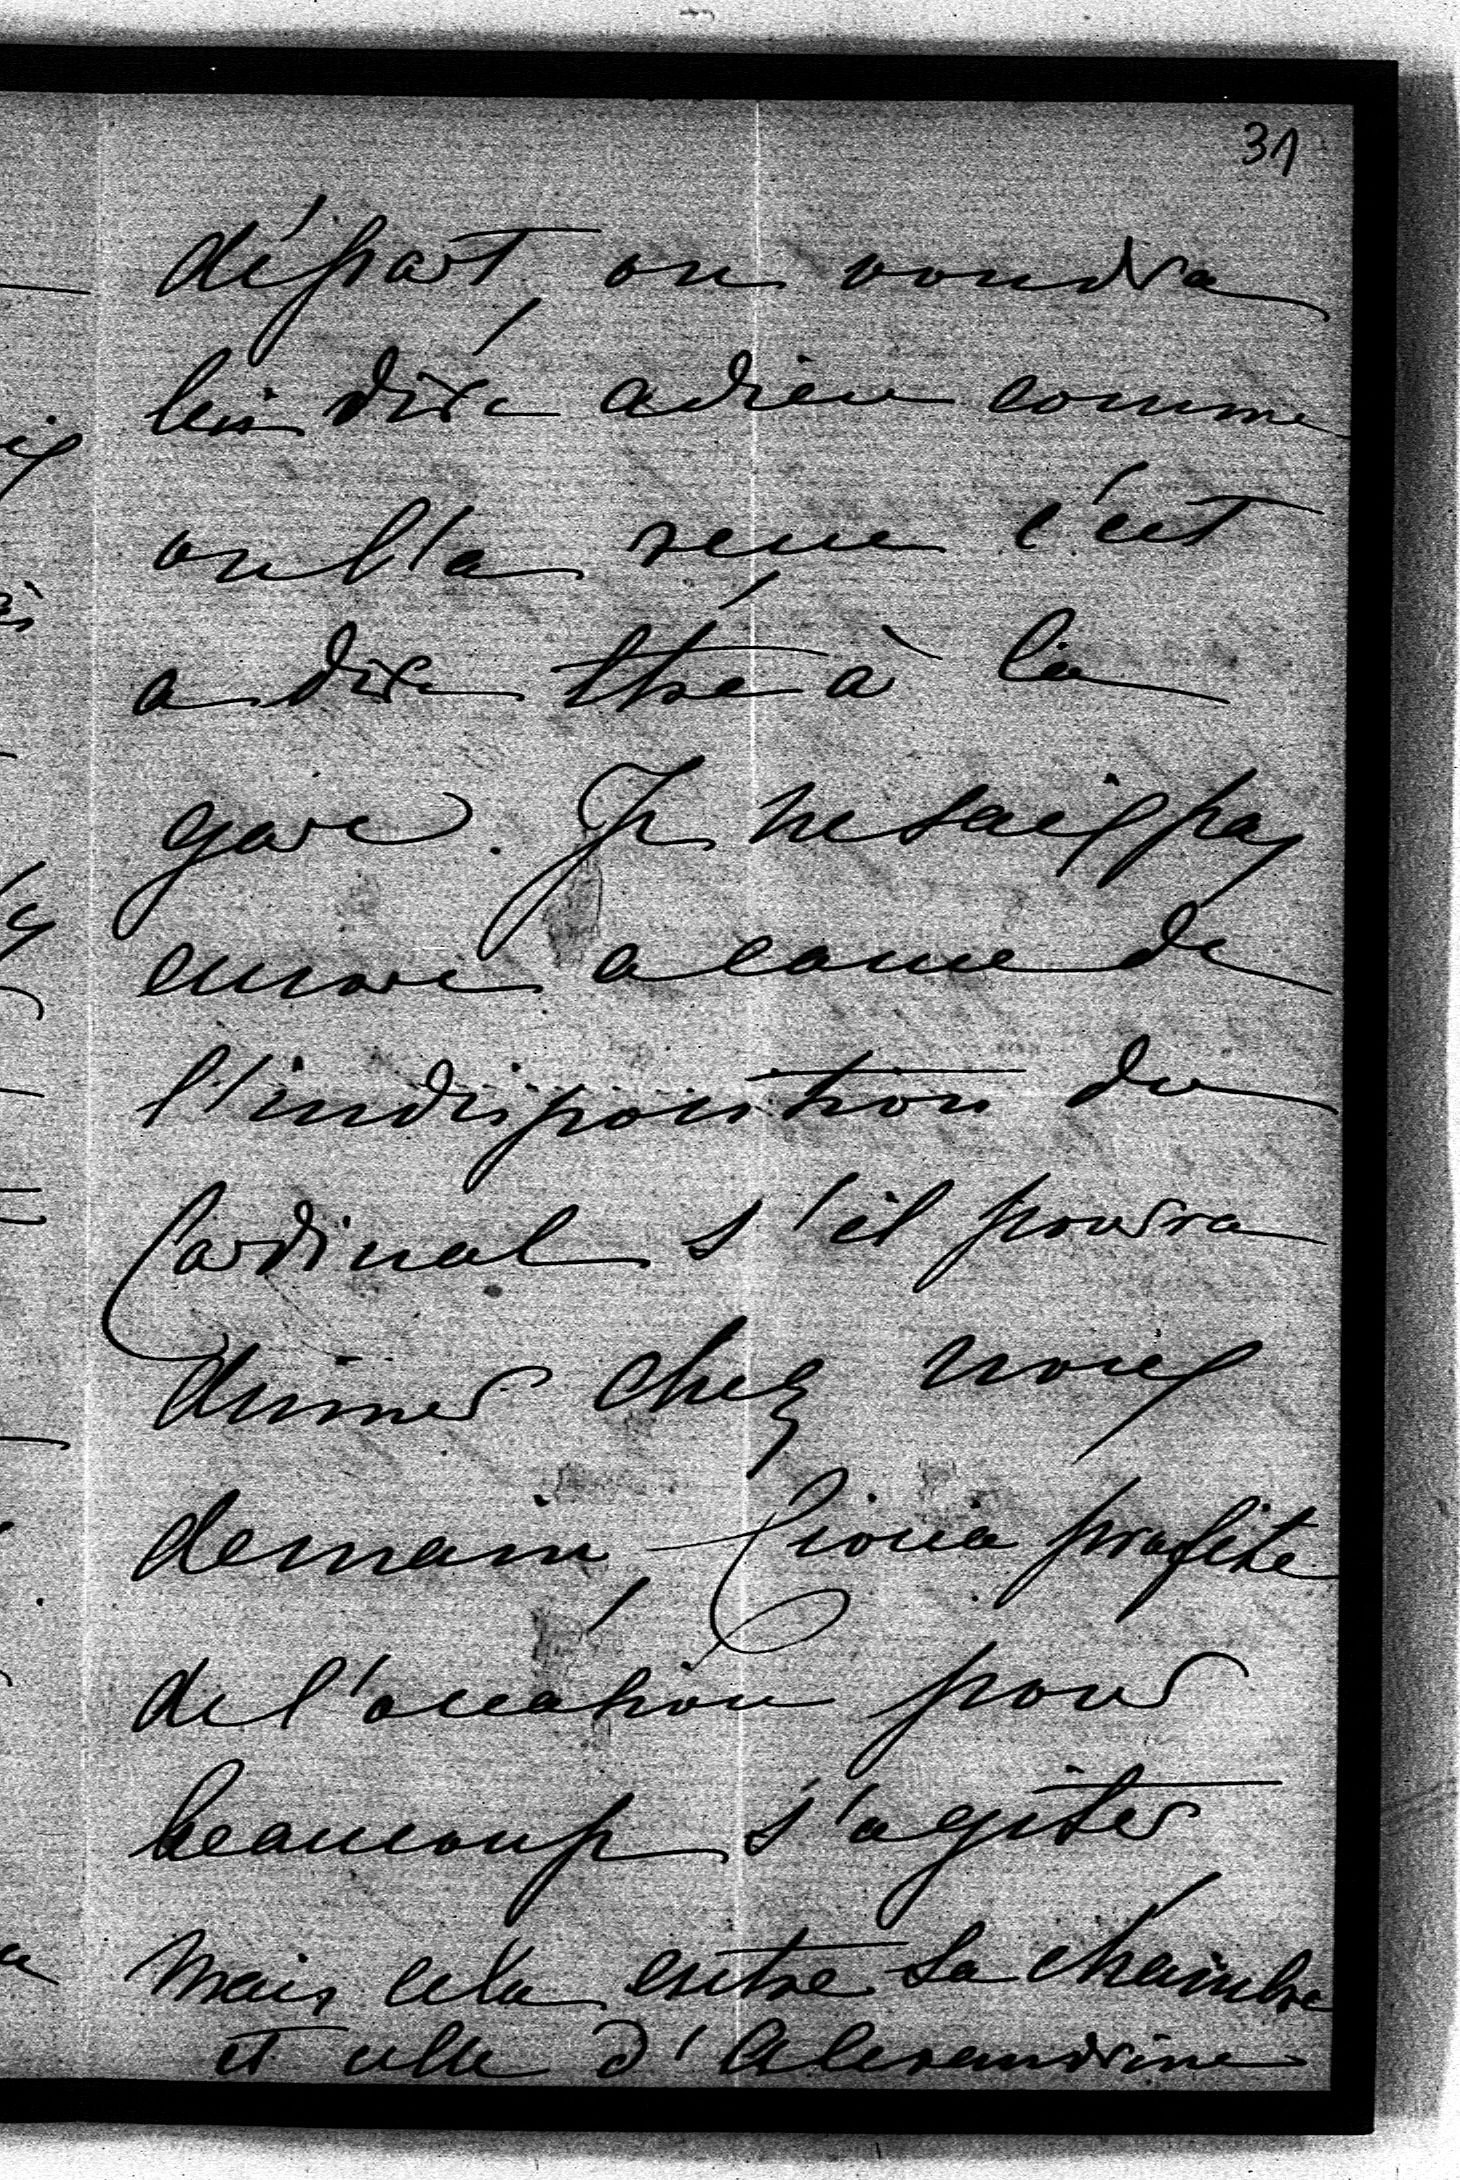 31
départ, on voudra
lui dire adieu comme
on l'a reçue c'est
a dire être à la
gare. Je ne sais pas
encore a cause de
l'indisposition du
Cardinal s'il pourra
diner chez nous
demain, profite
de l'occasion pour
beaucoup s'agiter
mais cela entre sa chambre
et celle d'Alexandrine